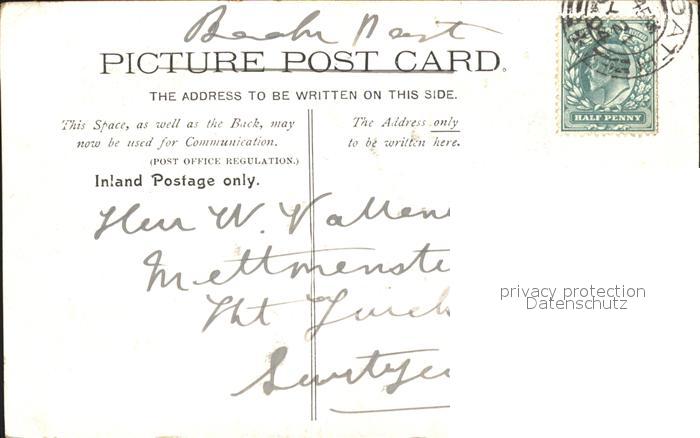 Book Post
PICTURE POST CARD.
THE ADDRESS TO BE WRITTEN ON THIS SIDE.
This Space, as well as the Back, may
now be used for Communication.
(POST OFFICE REGULATION.)
Inland Postage only.
The Address only
to be written here.
HALF PENNY
Herr W.
Mettmenste
Kt
privacy protection
Datenschutz